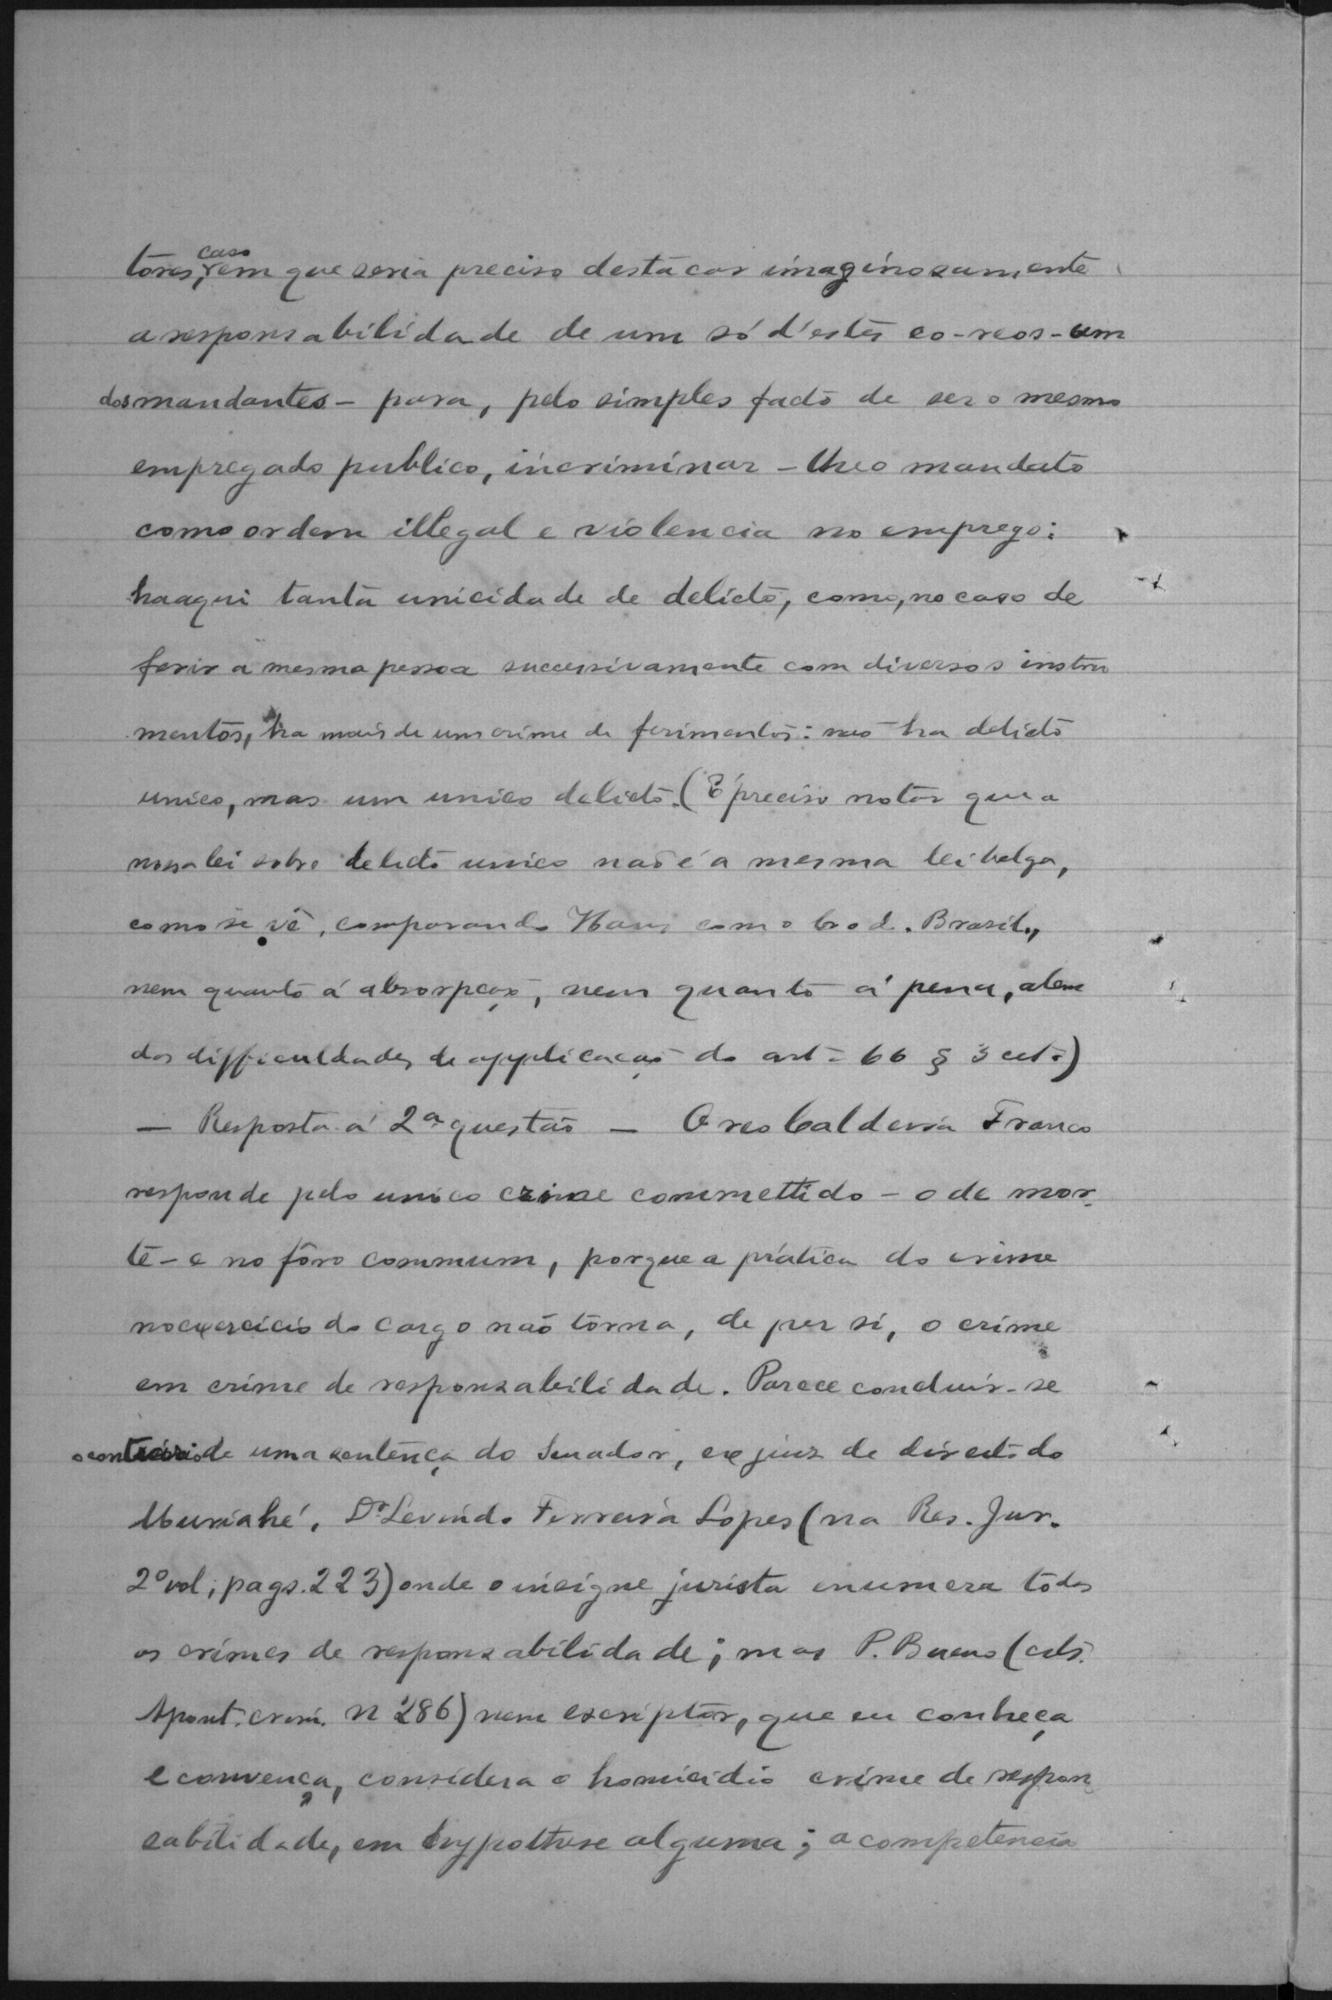 tores, caso em que seria preciso destacar imaginosamente
a responsabilidade de um só d'estes co-reos - um
dos mandantes - para, pelo simples facto de ser o mesmo
empregado publico, incriminar-lhe o mandato
como ordem illegal e violencia no emprego:
ha aqui tanta unicidade de delicto, como, no caso de
ferir a mesma pessoa successivamente com diversos instru
mentos, ha mais de um crime de ferimentos: não ha delicto
unico, mas um unico delicto. (É preciso notar que a
nossa lei sobre delicto unico não é a mesma lei belga,
como se vê, comparando Haus com o Cod. Brasil.,
nem quanto á absorpção, nem quanto á pena, alem
das difficuldades de applicação do art. 66 § 3 cit.)
— Resposta á 2ª questão — O reo Caldeira Franco
responde pelo unico crime commettido - o de mor-
te - e no fôro commum, porque a prática do crime
no exercicio do cargo não torna, de per si, o crime
em crime de responsabilidade. Parece concluir-se
o contrário de uma sentença do Senador, ex juiz de direito do
Muriahé, Dr Levindo Ferreira Lopes (na Res. Jur.
2º vol, pags. 223) onde o insigne jurista enumera todos
os crimes de responsabilidade; mas P. Bueno (cits.
Apont. crim. n 286) nem escriptor, que eu conheça
e convença, considera o homicidio crime de respon
sabilidade, em hypothese alguma; a competencia